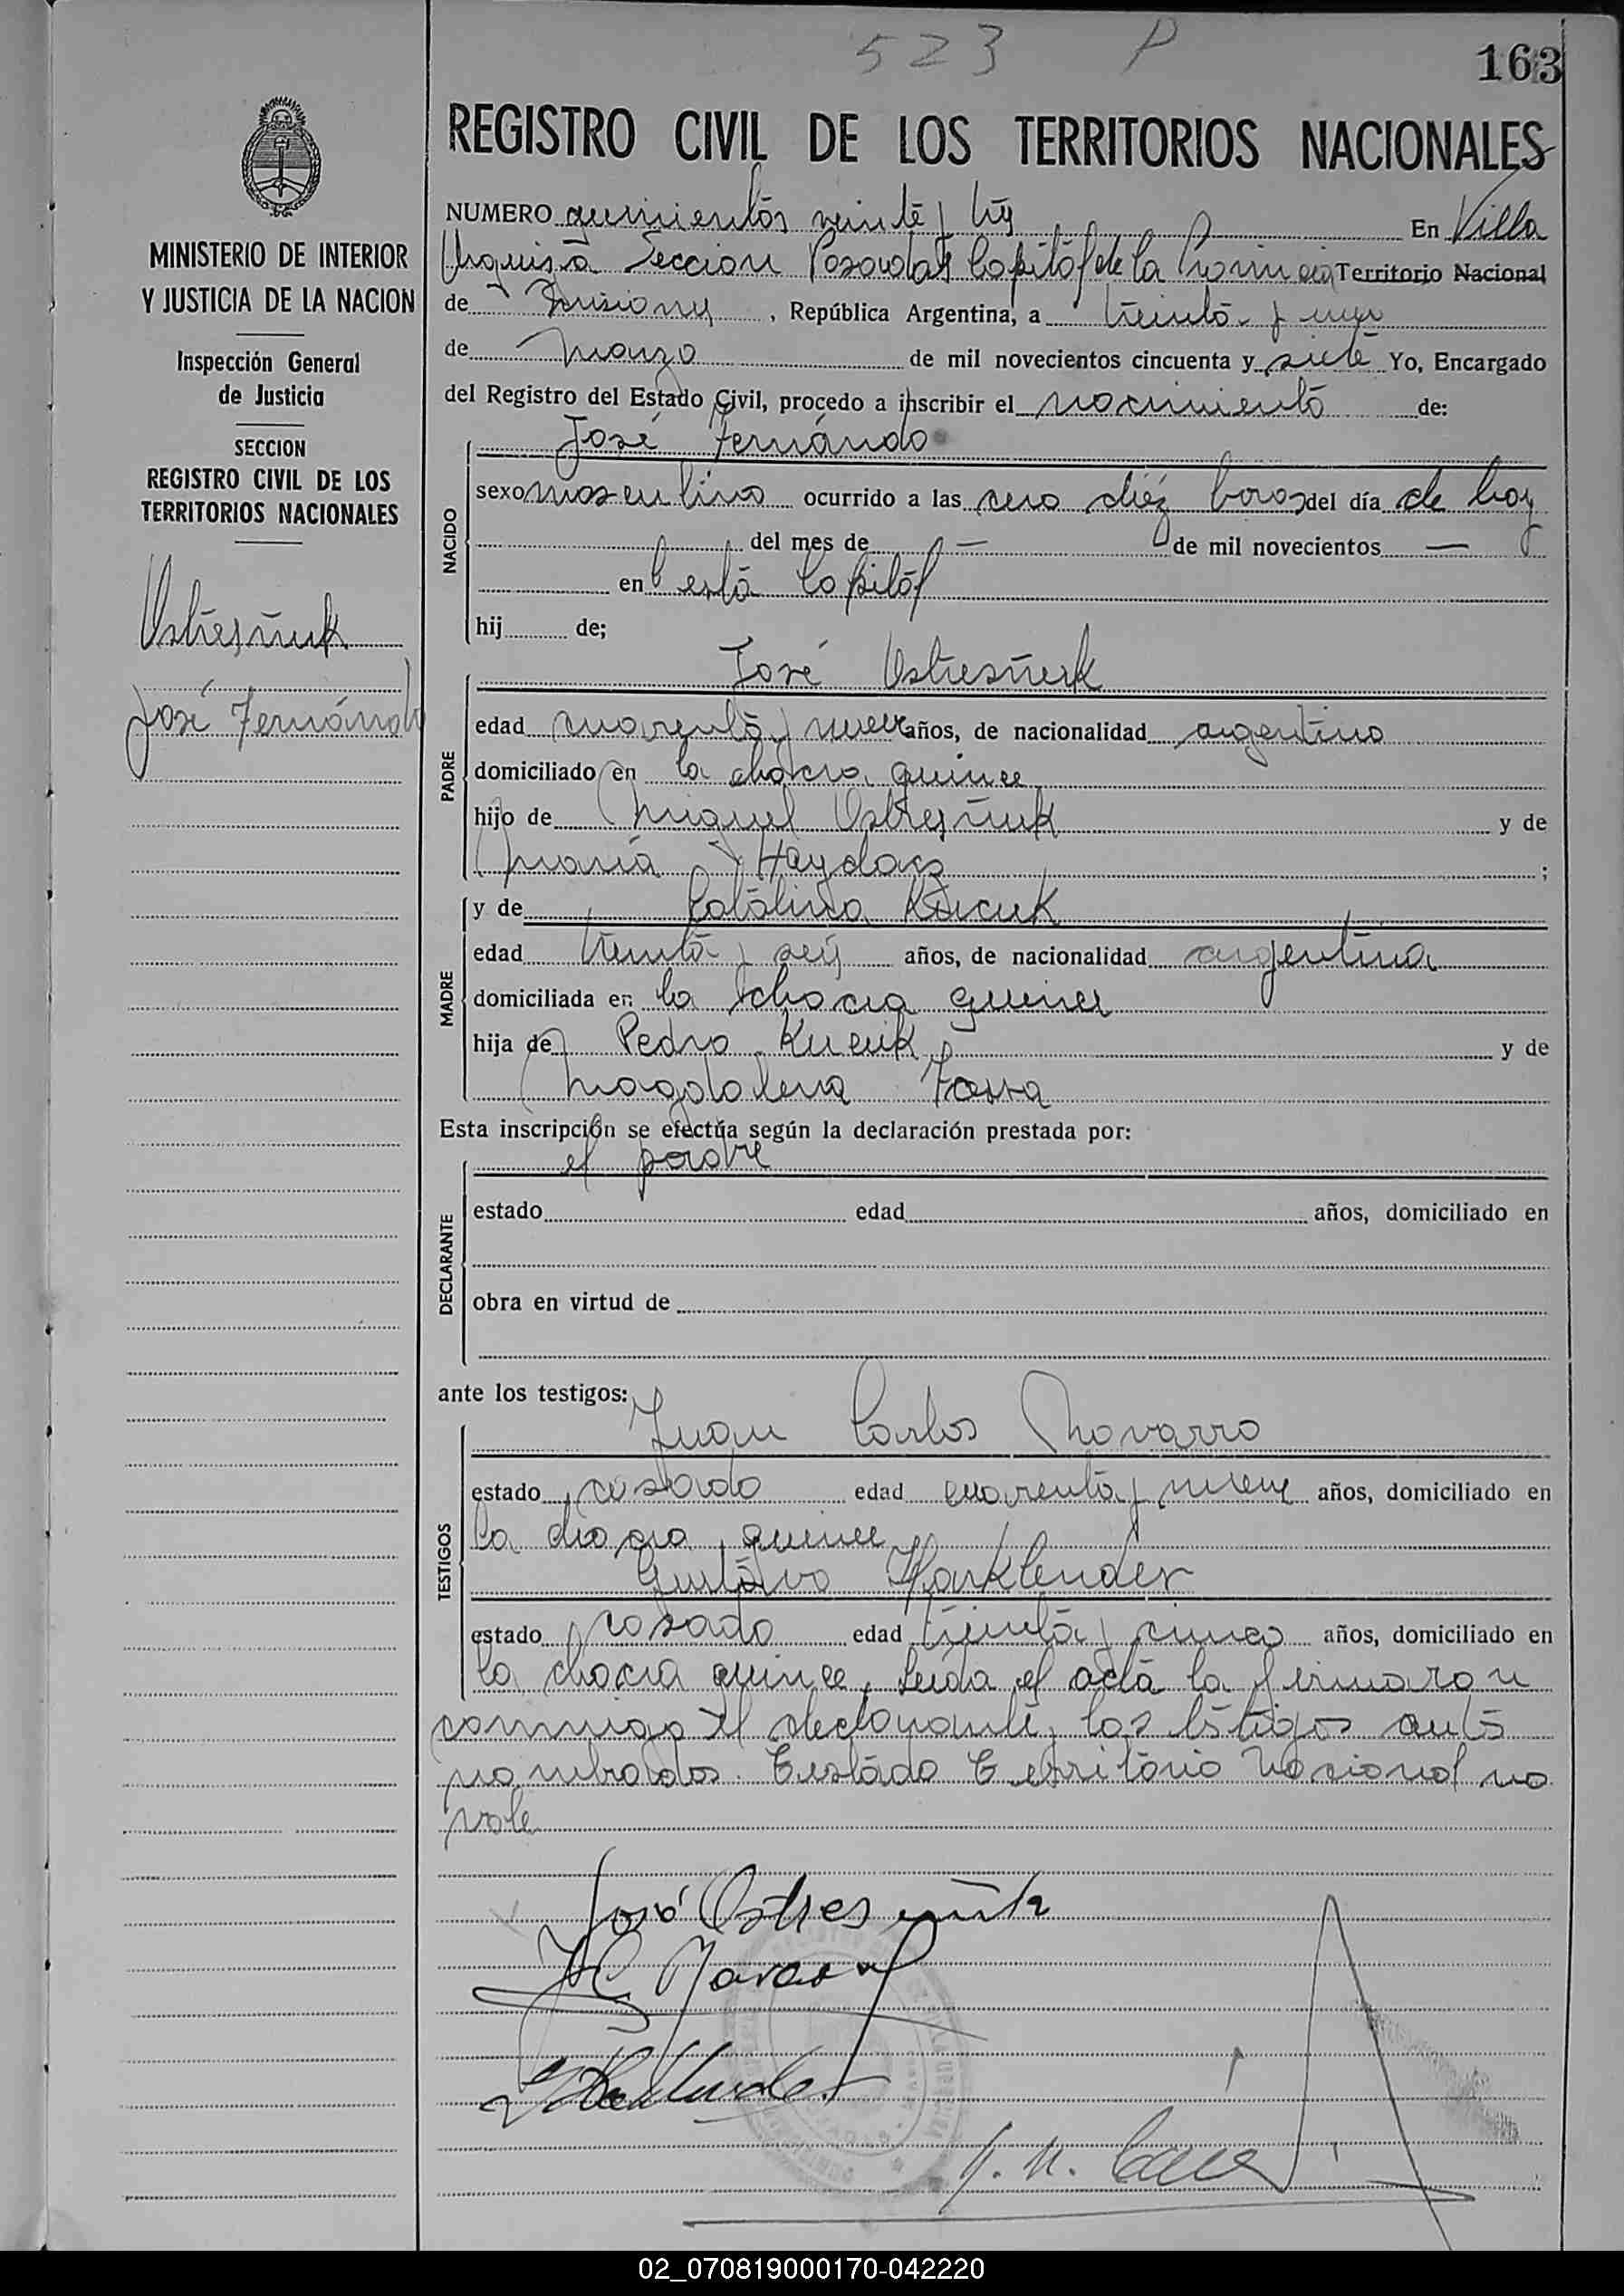 523 P
163
REGISTRO CIVIL DE LOS TERRITORIOS NACIONALES
MINISTERIO DE INTERIOR
Y JUSTICIA DE LA NACION
Inspección General
de Justicia
SECCION
REGISTRO CIVIL DE LOS
TERRITORIOS NACIONALES
José Fernándo
NUMERO quinientos veinte y tres En Villa
Urquiza Sección Posadas Capital de la Provincia Territorio Nacional
de Misiones, República Argentina, a treinta y uno
de Marzo de mil novecientos cincuenta y siete Yo, Encargado
del Registro del Estado Civil, procedo a inscribir el nacimiento de:
José Fernándo
NACIDO
sexo masculino ocurrido a las cero diez horas del día de hoy
del mes de — de mil novecientos —
en esta Capital
hij de;
José Ostresñuk
PADRE
edad cuarenta y nueve años, de nacionalidad argentino
domiciliado en la chacra quince
hijo de Miguel Ostresñuk y de
María ;
y de Catalina Kucuk
MADRE
edad treinta y seis años, de nacionalidad argentina
domiciliada en la chacra quince
hija de Pedro Kucuk y de
Magdalena
Esta inscripción se efectúa según la declaración prestada por:
el padre
DECLARANTE
estado edad años, domiciliado en
obra en virtud de
ante los testigos:
Juan Carlos Navarro
TESTIGOS
estado casado edad cuarenta y nueve años, domiciliado en
la chacra quince
Gustavo Harklender
estado casado edad treinta y cinco años, domiciliado en
la chacra quince, Leida el acta la firmaron
conmigo el declarante y los testigos ante
nombrados. Testado Territorio Nacional no
vale
José Ostresñuk
J C Navarro
02_070819000170-042220